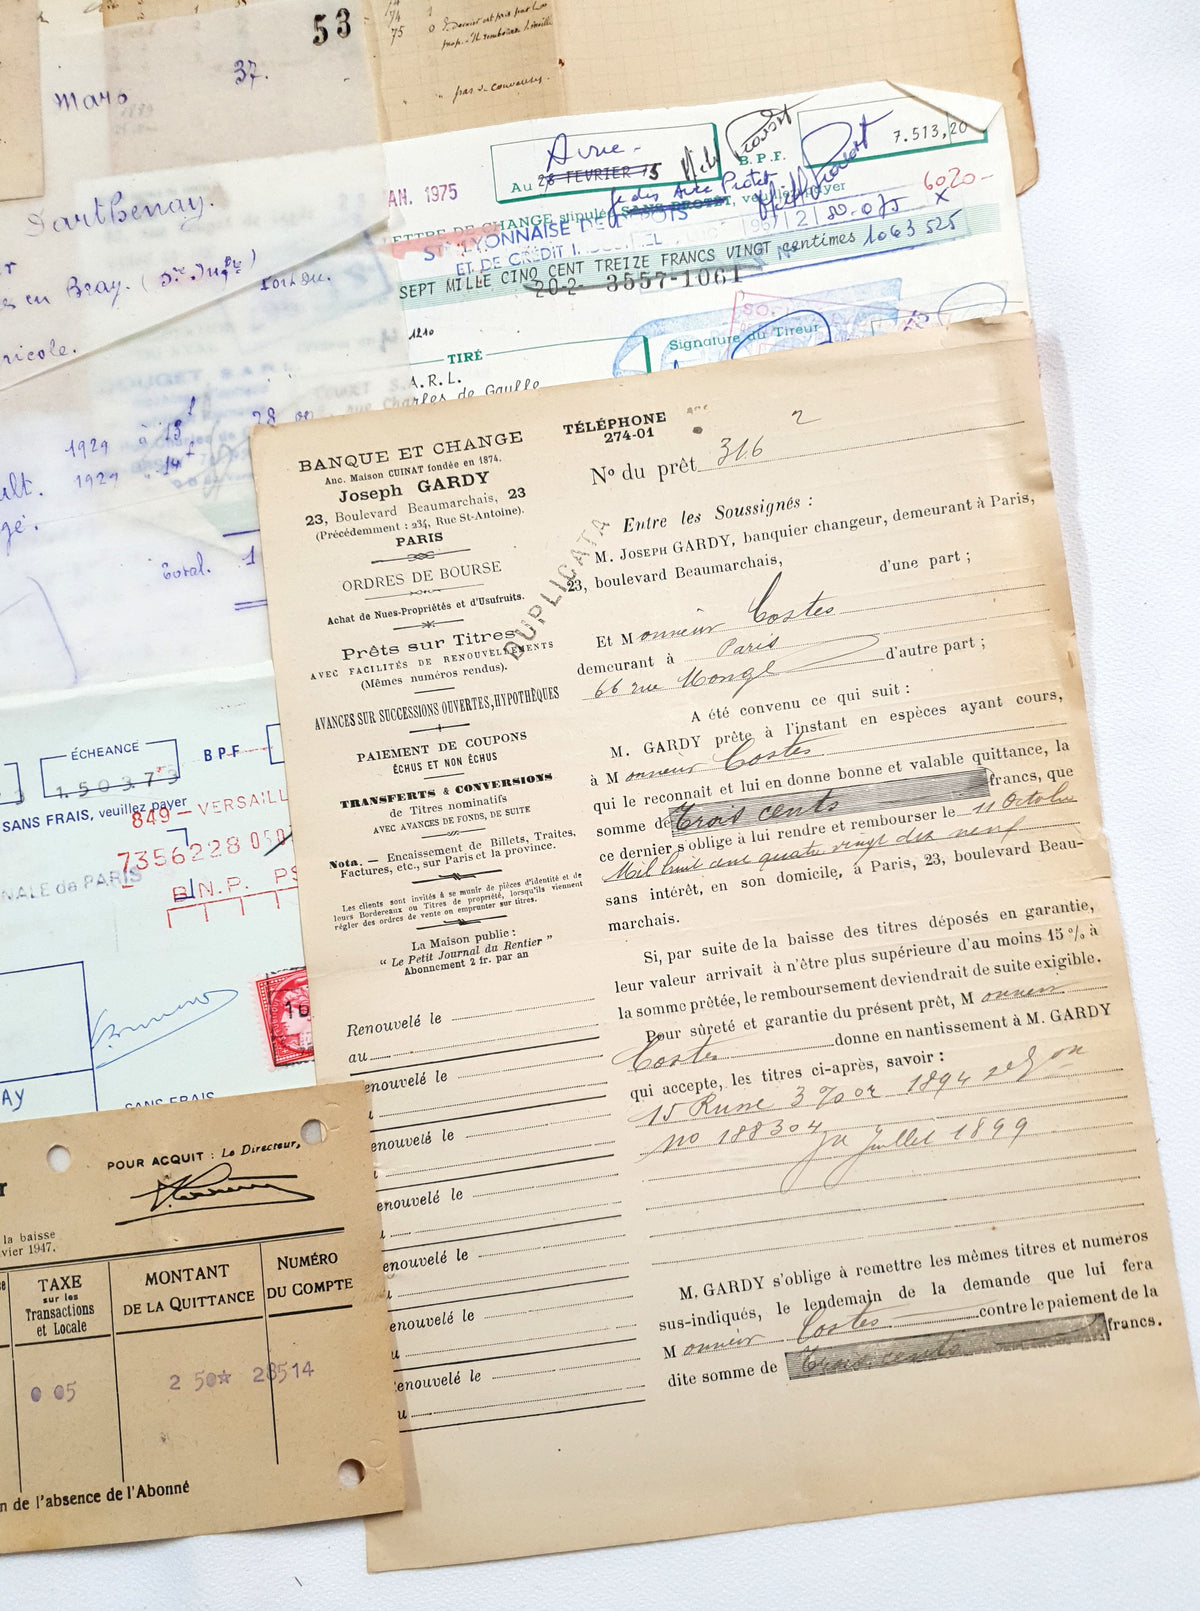 53
37.
74 1
75 0
pas de couveuses.
Mars
Parthenay.
Bray.
1929 à 15f
1929
Total. 1
AN. 1975
Au 28 FEVRIER 75
Avec
B.P.F.
7.513,20
LETTRE DE CHANGE stipulée SANS PROTET, veuillez payer
Avec Protet
6020-
X
Sté LYONNAISE DE DEPOTS
ET DE CRÉDIT INDUSTRIEL
SEPT MILLE CINQ CENT TREIZE FRANCS VINGT centimes 1063 525
20-2- 3557-1061
1210
TIRÉ
A.R.L.
rue Charles de Gaulle
Signature du Tireur
BANQUE ET CHANGE
Anc. Maison CUINAT fondée en 1874.
Joseph GARDY
23, Boulevard Beaumarchais, 23
(Précédemment : 234, Rue St-Antoine).
PARIS
ORDRES DE BOURSE
Achat de Nues-Propriétés et d'Usufruits.
Prêts sur Titres
AVEC FACILITÉS DE RENOUVELLEMENTS
(Mêmes numéros rendus).
AVANCES SUR SUCCESSIONS OUVERTES, HYPOTHÈQUES
PAIEMENT DE COUPONS
ÉCHUS ET NON ÉCHUS
TRANSFERTS & CONVERSIONS
de Titres nominatifs
AVEC AVANCES DE FONDS, DE SUITE
Nota. — Encaissement de Billets, Traites,
Factures, etc., sur Paris et la province.
Les clients sont invités à se munir de pièces d'identité et de
leurs Bordereaux ou Titres de propriété, lorsqu'ils viennent
régler des ordres de vente ou emprunter sur titres.
La Maison publie :
“ Le Petit Journal du Rentier ”
Abonnement 2 fr. par an
Renouvelé le
au
enouvelé le
enouvelé le
enouvelé le
enouvelé le
enouvelé le
enouvelé le
u
DUPLICATA
TÉLÉPHONE
274-01
2
No du prêt 316
Entre les Soussignés :
M. JOSEPH GARDY, banquier changeur, demeurant à Paris,
23, boulevard Beaumarchais, d'une part ;
Et Monsieur Costes
demeurant à Paris
66 rue Monge d'autre part ;
A été convenu ce qui suit :
M. GARDY prête à l'instant en espèces ayant cours,
à Monsieur Costes
qui le reconnait et lui en donne bonne et valable quittance, la
somme de Trois cents francs, que
ce dernier s'oblige à lui rendre et rembourser le 11 Octobre
Mil huit cent quatre vingt dix neuf
sans intérêt, en son domicile, à Paris, 23, boulevard Beau-
marchais.
Si, par suite de la baisse des titres déposés en garantie,
leur valeur arrivait à n'être plus supérieure d'au moins 15 % à
la somme prêtée, le remboursement deviendrait de suite exigible.
Pour sûreté et garantie du présent prêt, Monsieur
Costes donne en nantissement à M. GARDY
qui accepte, les titres ci-après, savoir :
15 Russe 3 % or 1894
no 188304 Juillet 1899
M. GARDY s'oblige à remettre les mêmes titres et numéros
sus-indiqués, le lendemain de la demande que lui fera
Monsieur Costes contre le paiement de la
dite somme de Trois cents francs.
ÉCHEANCE
1.5 0 3.7 3
B P F
SANS FRAIS, veuillez payer
849 - VERSAILL
7356228 050
NALE de PARIS
B.N.P. PS
SANS FRAIS
AY
POUR ACQUIT : Le Directeur,
la baisse
vier 1947.
TAXE
sur les
Transactions
et Locale
MONTANT
DE LA QUITTANCE
NUMÉRO
DU COMPTE
0 05
2 50* 28514
n de l'absence de l'Abonné